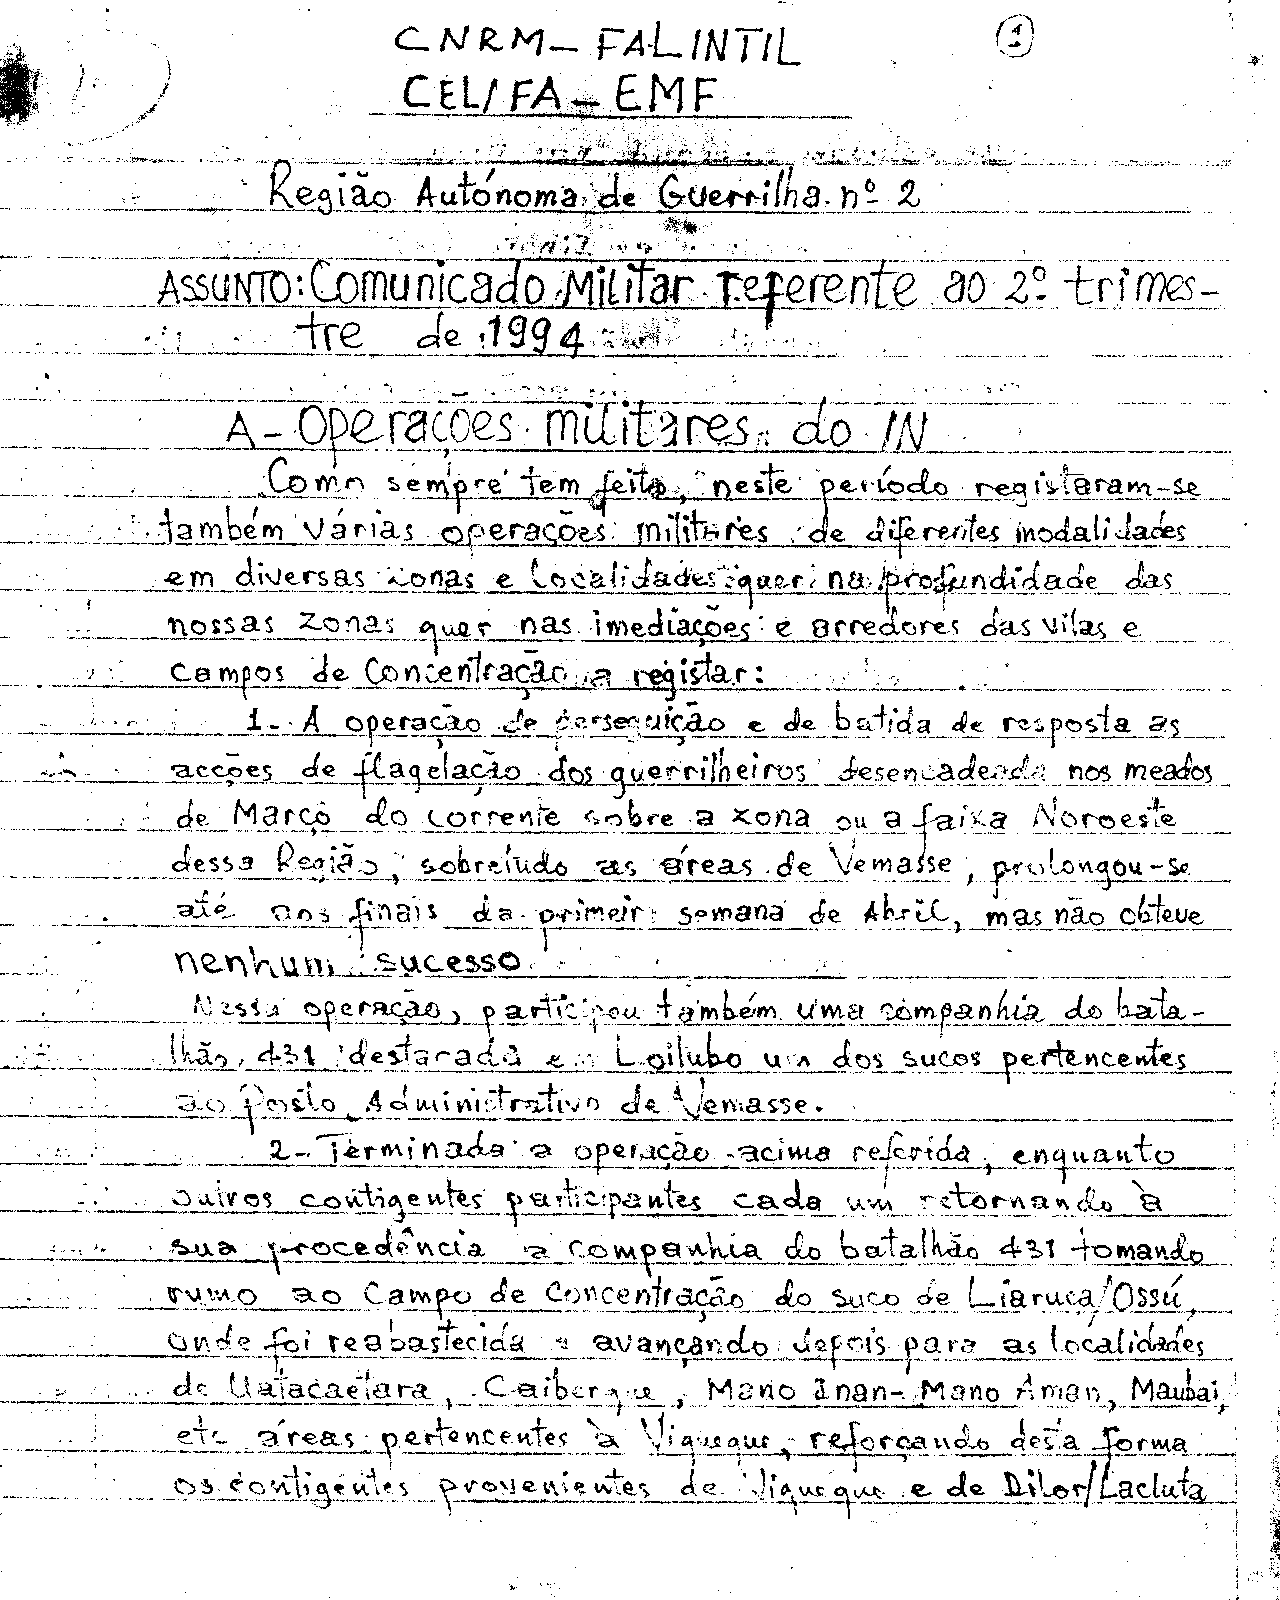 1
CNRM – FALINTIL
CEL/FA – EMF
Região Autónoma de Guerrilha nº 2
ASSUNTO: Comunicado Militar referente ao 2º trimes-
tre de 1994
A – Operações militares do IN
Como sempre tem feito, neste período registaram-se
também várias operações militares de diferentes modalidades
em diversas zonas e localidades quer na profundidade das
nossas zonas quer nas imediações e arredores das vilas e
campos de Concentração a registar:
1- A operação de perseguição e de batida de resposta as
acções de flagelação dos guerrilheiros desencadeada nos meados
de Março do corrente sobre a zona ou a faixa Noroeste
dessa Região, sobretudo as áreas de Vemasse, prolongou-se
até aos finais da primeira semana de Abril, mas não obteve
nenhum sucesso
Nessa operação, participou também uma companhia do bata-
lhão 431 destacada em Loilubo um dos sucos pertencentes
ao Posto Administrativo de Vemasse.
2- Terminada a operação acima referida, enquanto
outros contigentes participantes cada um retornando à
sua procedência a companhia do batalhão 431 tomando
rumo ao Campo de Concentração do suco de Liaruca/Ossú,
onde foi reabastecida e avançando depois para as localidades
de Uatacaelara, Caiberque, Mano Inan-Mano Aman, Maubai,
etc áreas pertencentes à Viqueque, reforçando desta forma
os contigentes provenientes de Viqueque e de Dilor/Lacluta